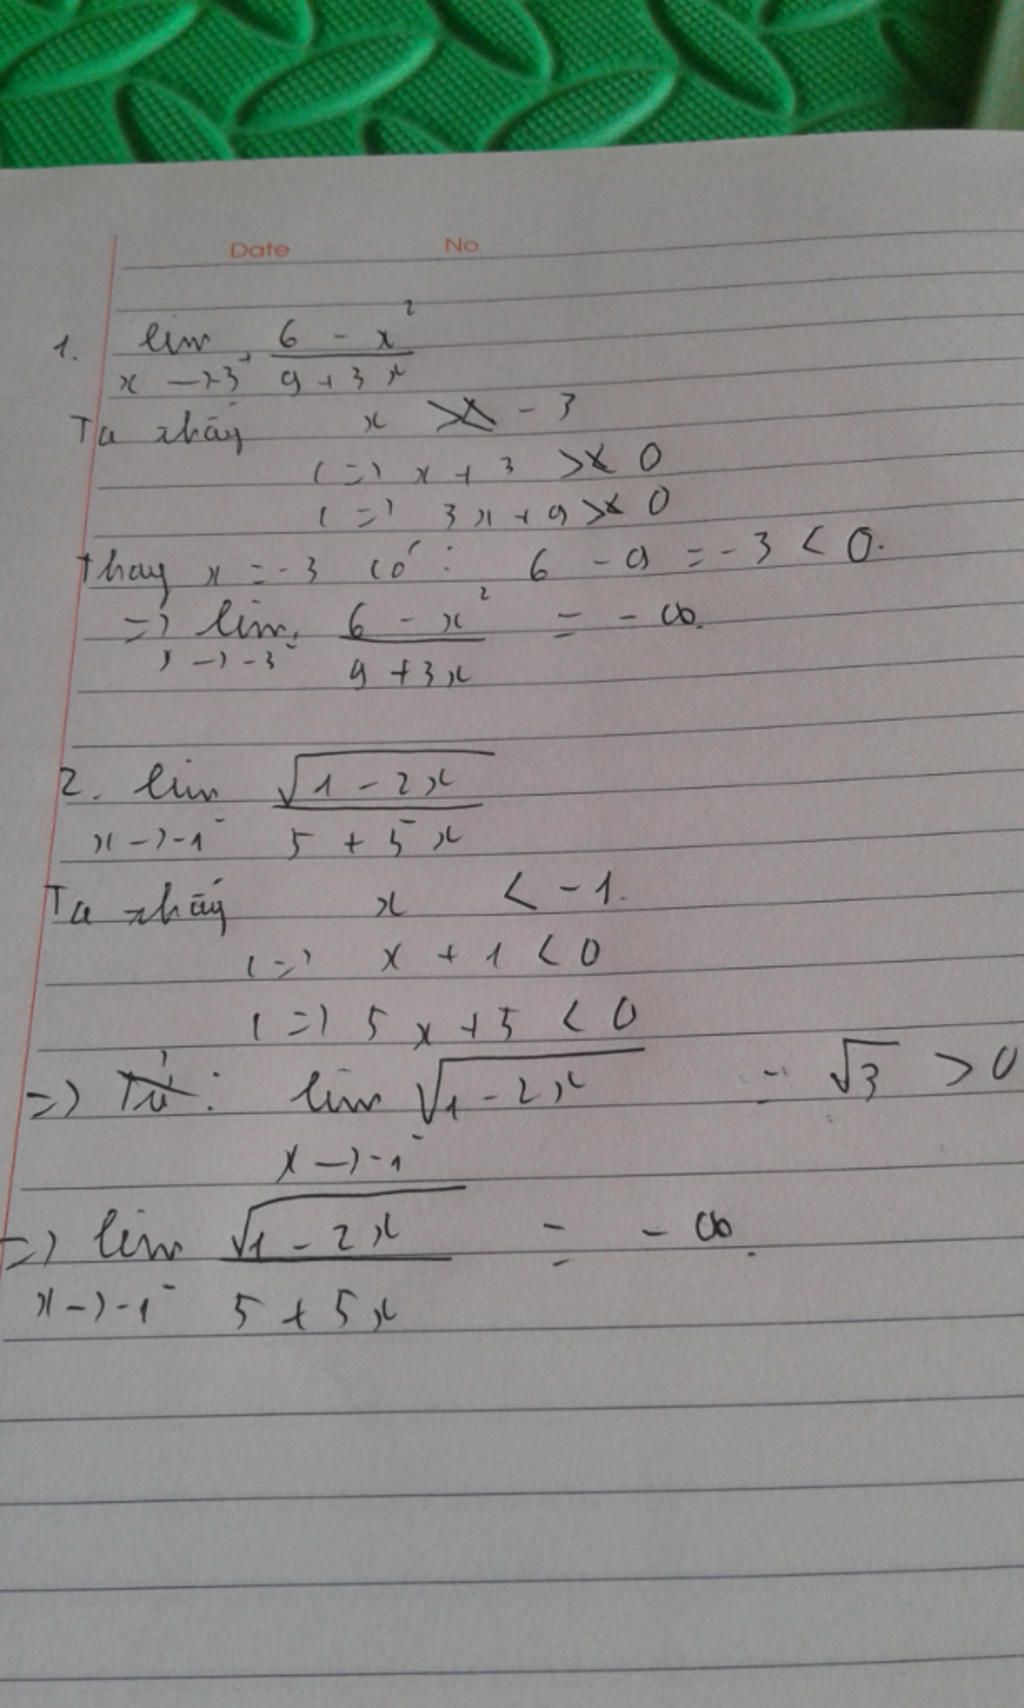 Date No
1. lim 6 - x²
x -> -3⁺ 9 + 3x
Ta thấy x > -3
(=) x + 3 > 0
(=) 3x + 9 > 0
thay x = -3 có : 6 - 9 = -3 < 0.
=) lim 6 - x² = - ∞.
x -> -3⁻ 9 + 3x
2. lim √1 - 2x
x -> -1⁻ 5 + 5x
Ta thấy x < -1.
(=) x + 1 < 0
(=) 5x + 5 < 0
=) Tử : lim √1 - 2x = √3 > 0
x -> -1⁻
=) lim √1 - 2x = - ∞.
x -> -1⁻ 5 + 5x